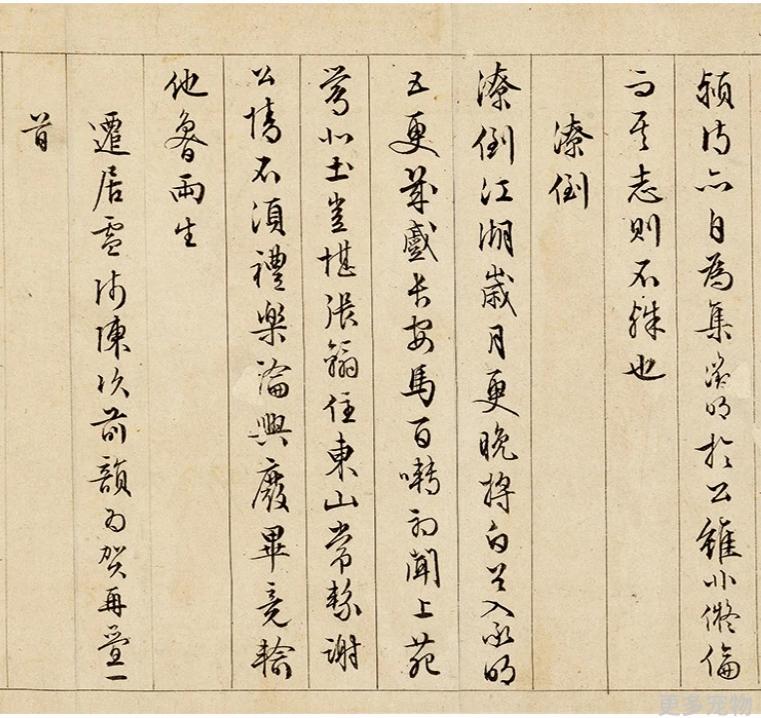 潁詩亦自為集淵明於公雖非儗倫
而其志則不殊也
潦倒
潦倒江湖歲月更晚將白首入承明
五更戲長安馬百囀初聞上苑
鶯北土豈堪張翰住東山常繫謝
公情不須禮樂論興廢畢竟輸
他魯兩生
遷居盧師陳次前韻為賀再疊一
首
更多宠物